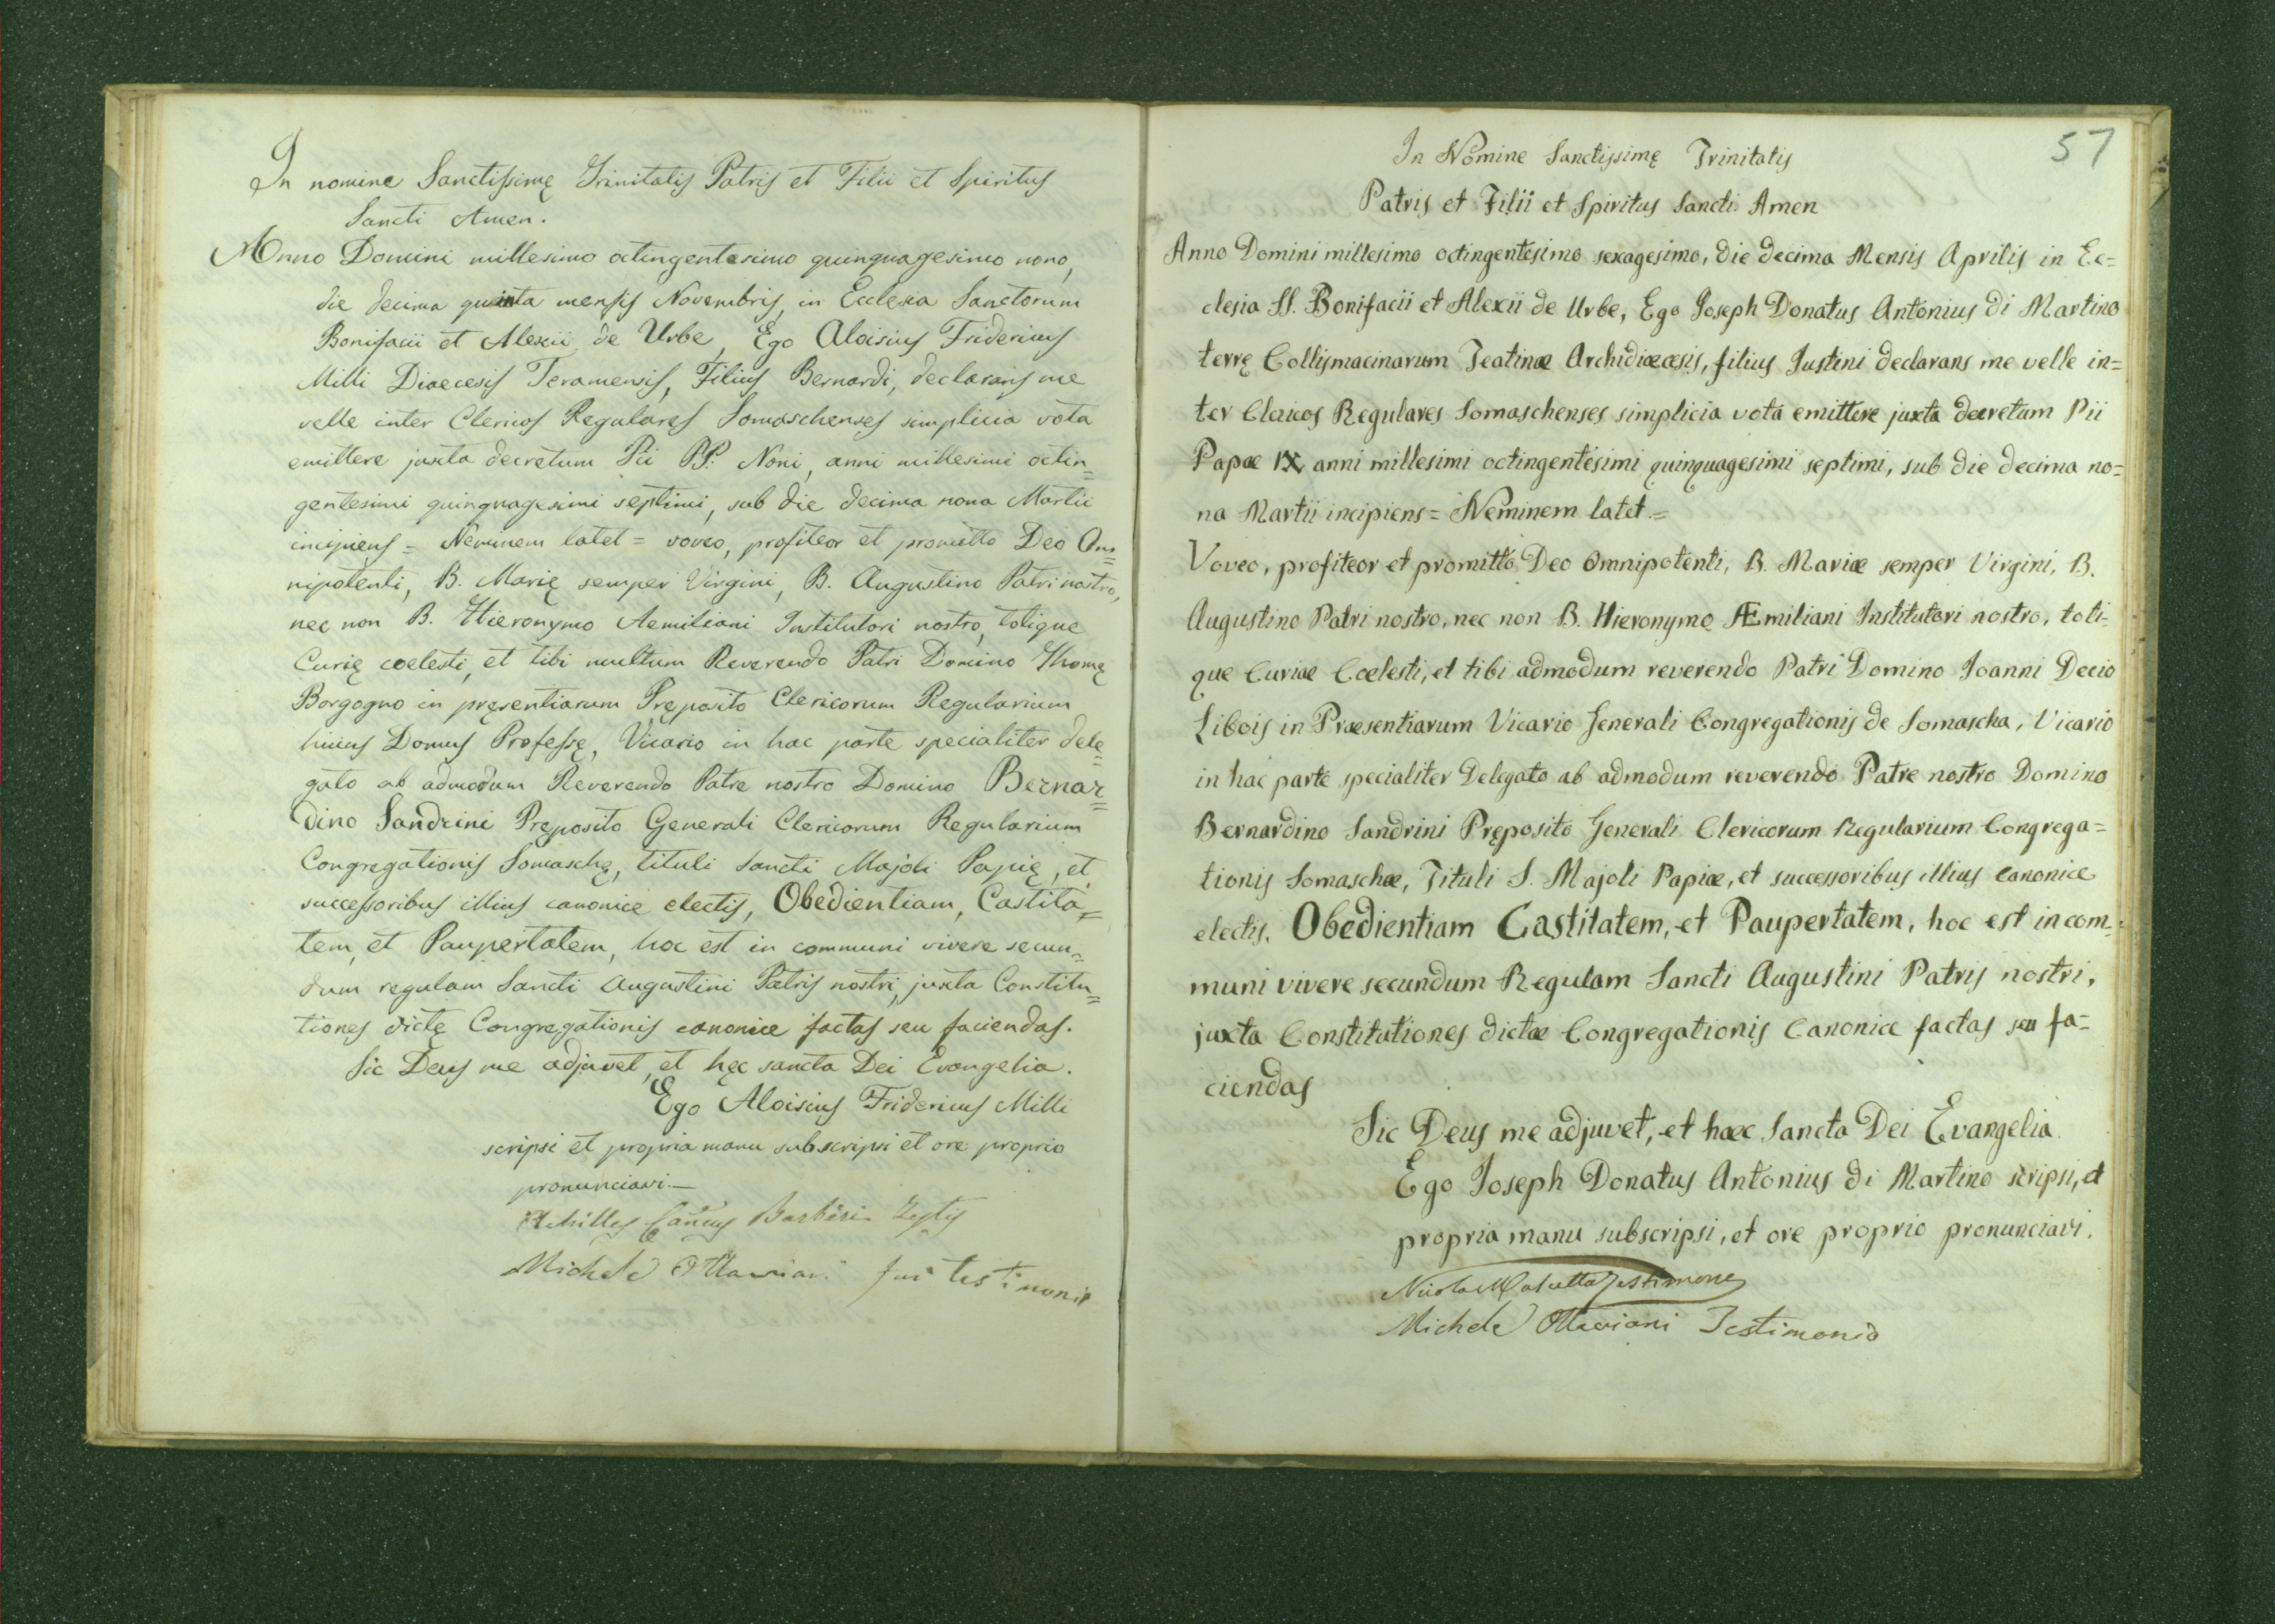 In nomine Sanctissimę Trinitatis Patris et Filii et Spiritus
Sancti Amen.
Anno Domini millesimo octingentesimo quinquagesimo nono,
die decima quinta mensis Novembris, in Ecclesia Sanctorum
Bonifacii et Alexii de Urbe, Ego Aloisius Fridericus
Milli Diaecesis Teramensis, Filius Bernardi, declarans me
velle inter Clericos Regulares Somaschenses simplicia vota
emittere juxta decretum Pii PP. Noni, anni millesimi octin=
gentesimi quinquagesimi septimi, sub die decima nona Martii
incipiens = Neminem latet = voveo, profiteor et promitto Deo Om=
nipotenti, B. Marię semper Virgini, B. Augustino Patri nostro,
nec non B. Hieronymo Aemiliani Institutori nostro, totique
Curię coelesti, et tibi multum Reverendo Patri Domino Thomę
Borgogno in pręsentiarum Pręposito Clericorum Regularium
hujus Domus Professę, Vicario in hac parte specialiter dele=
gato ab admodum Reverendo Patre nostro Domino Bernar=
dino Sandrini Pręposito Generali Clericorum Regularium
Congregationis Somaschę, tituli Sancti Majoli Papię, et
successoribus illius canonice electis, Obedientiam, Castita=
tem, et Paupertatem, hoc est in communi vivere secun=
dum regulam Sancti Augustini Patris nostri, juxta Constitu=
tiones dictę Congregationis canonice factas seu faciendas.
Sic Deus me adjuvet, et hęc sancta Dei Evangelia.
Ego Aloisius Fridericus Milli
scripsi et propria manu subscripsi et ore proprio
pronunciavi.—
Achilles Barbieri Testis
Michele Ottaviani fui testimonio
57
In Nomine Sanctissimę Trinitatis
Patris et Filii et Spiritus Sancti Amen
Anno Domini millesimo octingentesimo sexagesimo, die decima Mensis Aprilis in Ec=
clesia SS. Bonifacii et Alexii de Urbe, Ego Joseph Donatus Antonius di Martino
terrę Collismacinarum Teatinæ Archidiæcesis, filius Justini declarans me velle in=
ter Clericos Regulares Somaschenses simplicia vota emittere juxta decretum Pii
Papæ IX anni millesimi octingentesimi quinquagesimi septimi, sub die decima no=
na Martii incipiens = Neminem latet =
Voveo, profiteor et promitto Deo Omnipotenti, B. Mariæ semper Virgini, B.
Augustino Patri nostro, nec non B. Hieronymo Æmiliani Institutori nostro, toti-
que Curiæ Cœlesti, et tibi admodum reverendo Patri Domino Joanni Decio
Libois in Præsentiarum Vicario Generali Congregationis de Somascha, Vicario
in hac parte specialiter Delegato ab admodum reverendo Patre nostro Domino
Bernardino Sandrini Pręposito Generali Clericorum Regularium Congrega=
tionis Somaschæ, Tituli S. Majoli Papiæ, et successoribus illius canonice
electis. Obedientiam Castitatem, et Paupertatem, hoc est in com=
muni vivere secundum Regulam Sancti Augustini Patris nostri,
juxta Constitutiones dictæ Congregationis Canonice factas seu fa=
ciendas
Sic Deus me adjuvet, et hæc Sancta Dei Evangelia.
Ego Joseph Donatus Antonius di Martino scripsi, et
propria manu subscripsi, et ore proprio pronunciavi.
Nicola Testimone
Michele Ottaviani Testimonio